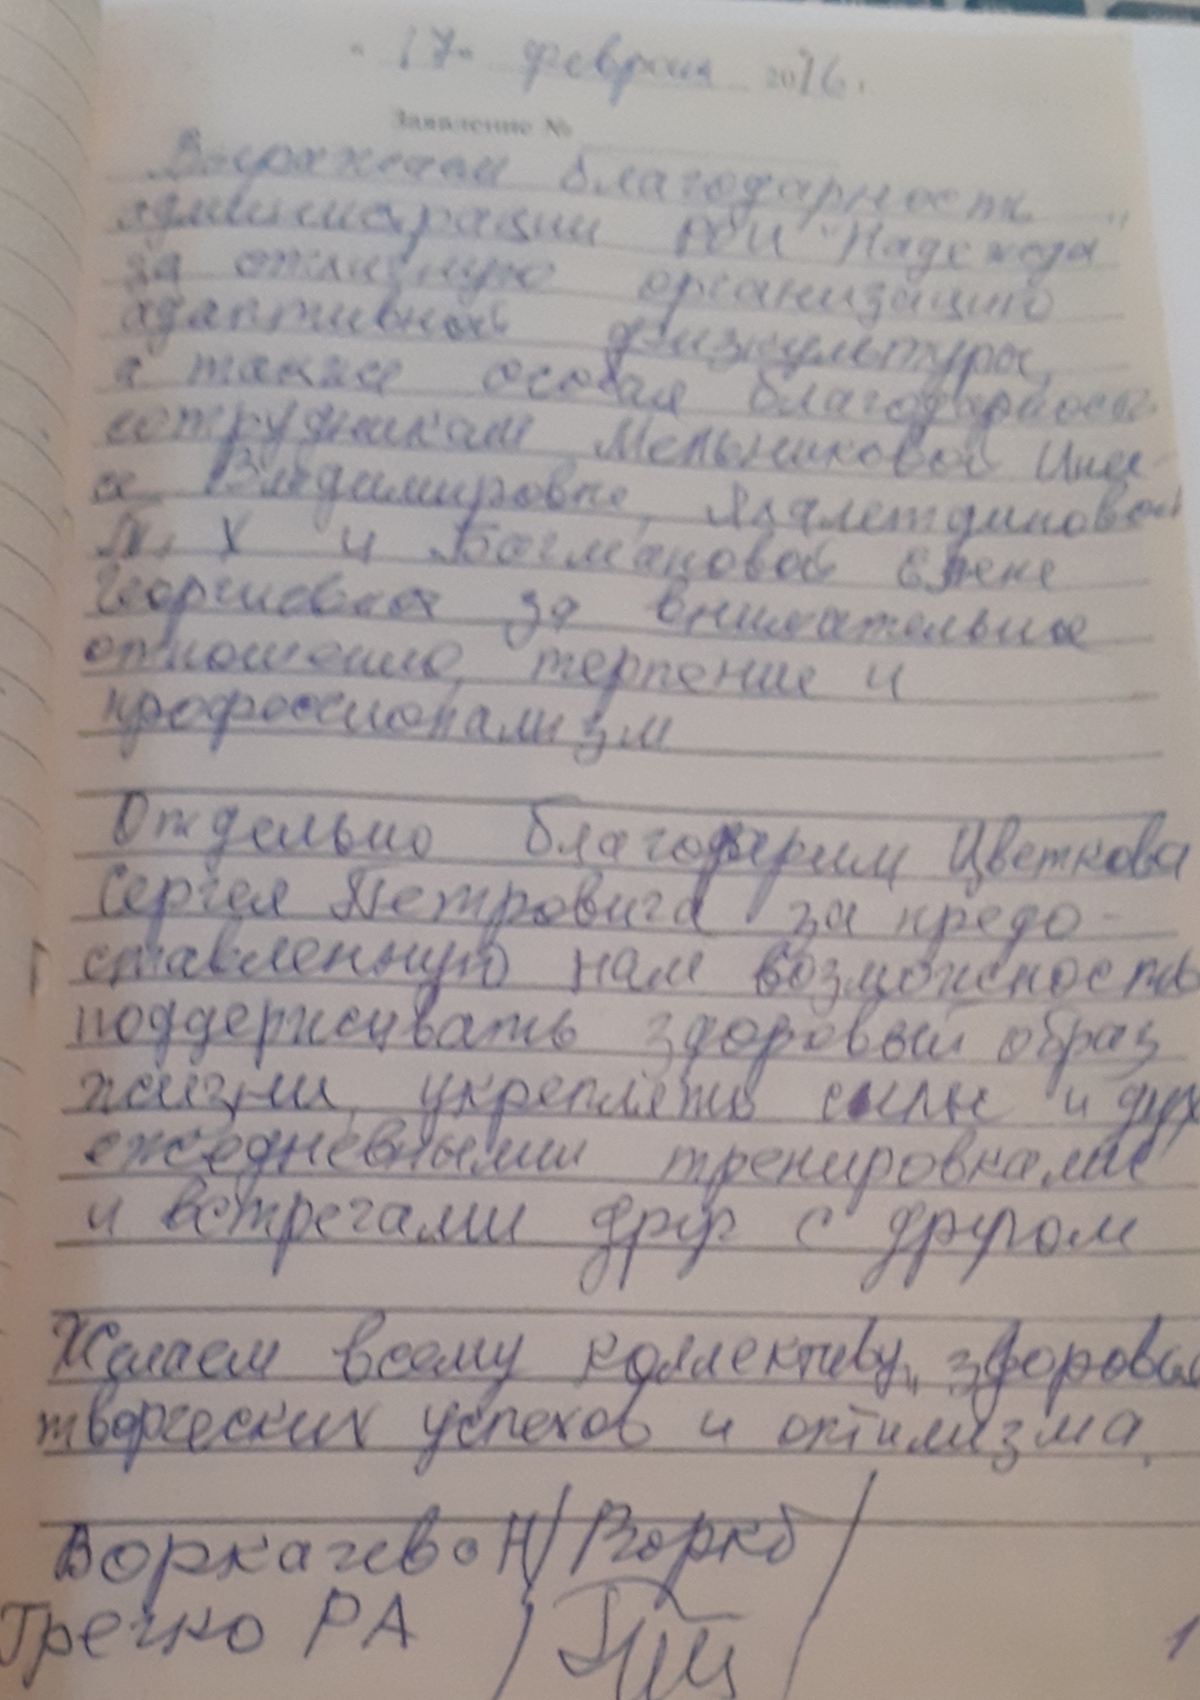 "17" февраля 2026 г.
Заявление №
Выражаем благодарность
администрации РОИ "Надежда"
за отличную организацию
адаптивной физкультуры,
а также особая благодарность
сотрудникам Мельниковой Инес-
се Владимировне, Ялалетдиновой
Х и Богмановой Елене
Георгиевне за внимательное
отношение, терпение и
профессионализм
Отдельно благодарим Цветкова
Сергея Петровича за предо-
ставленную нам возможность
поддерживать здоровый образ
жизни, укреплять силы и дух
ежедневными тренировками
и встречами друг с другом
Желаем всему коллективу, здоровья
творческих успехов и оптимизма.
Воркачева Н / Ворк /
Гречко РА /